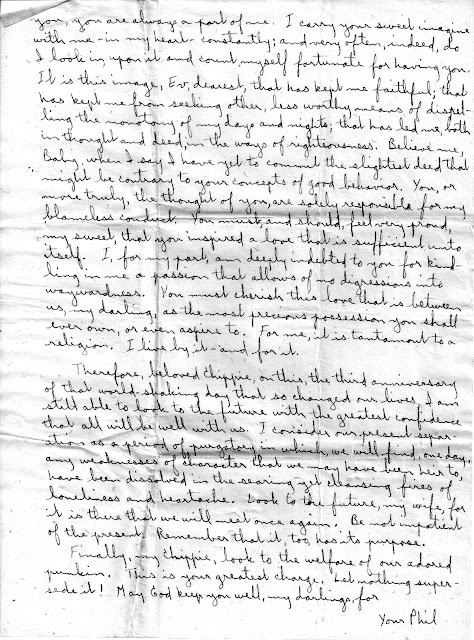 you, you are always a part of me. I carry your sweet imagine
with me - in my heart - constantly; and very often, indeed, do
I look in upon it and count myself fortunate for having you.
It is this image, Ev, dearest, that has kept me faithful; that
has kept me from seeking other, less worthy means of dispel-
ling the monotony of my days and nights; that has led me, both
in thought and deed, in the ways of righteousness. Believe me,
Baby, when I say I have yet to commit the slightest deed that
might be contrary to your concepts of good behavior. You, or
more truly, the thought of you, are solely reponsible for my
blameless conduct. You must, and should, feel very proud,
my sweet, that you inspired a love that is sufficient unto
itself. I, for my part, am deeply indebted to you for kind-
ling in me a passion that allows of no digressions into
waywardness. You must cherish this love that is between
us, my darling, as the most precious possession you shall
ever own, or even aspire to. For me, it is tantamount to a
religion. I live by it - and for it.
Therefore, beloved Chippie, on this, the third anniversary
of that world-shaking day that so changed our lives, I am
still able to look to the future with the greatest confidence
that all will be well with us. I consider our present separ-
ation as a period of purgatory, in which, we will find, one day,
any weaknesses of character that we may have been heir to,
have been dissolved in the searing yet cleansing fires of
loneliness and heartache. Look to the future, my wife, for
it is there that we will meet once again. Be not impatient
of the present. Remember that it, too, has its purpose.
Finally, my Chippie, look to the welfare of our adored
punkin. This is your greatest charge. Let nothing super-
sede it! May God keep you well, my darlings, for
Your Phil